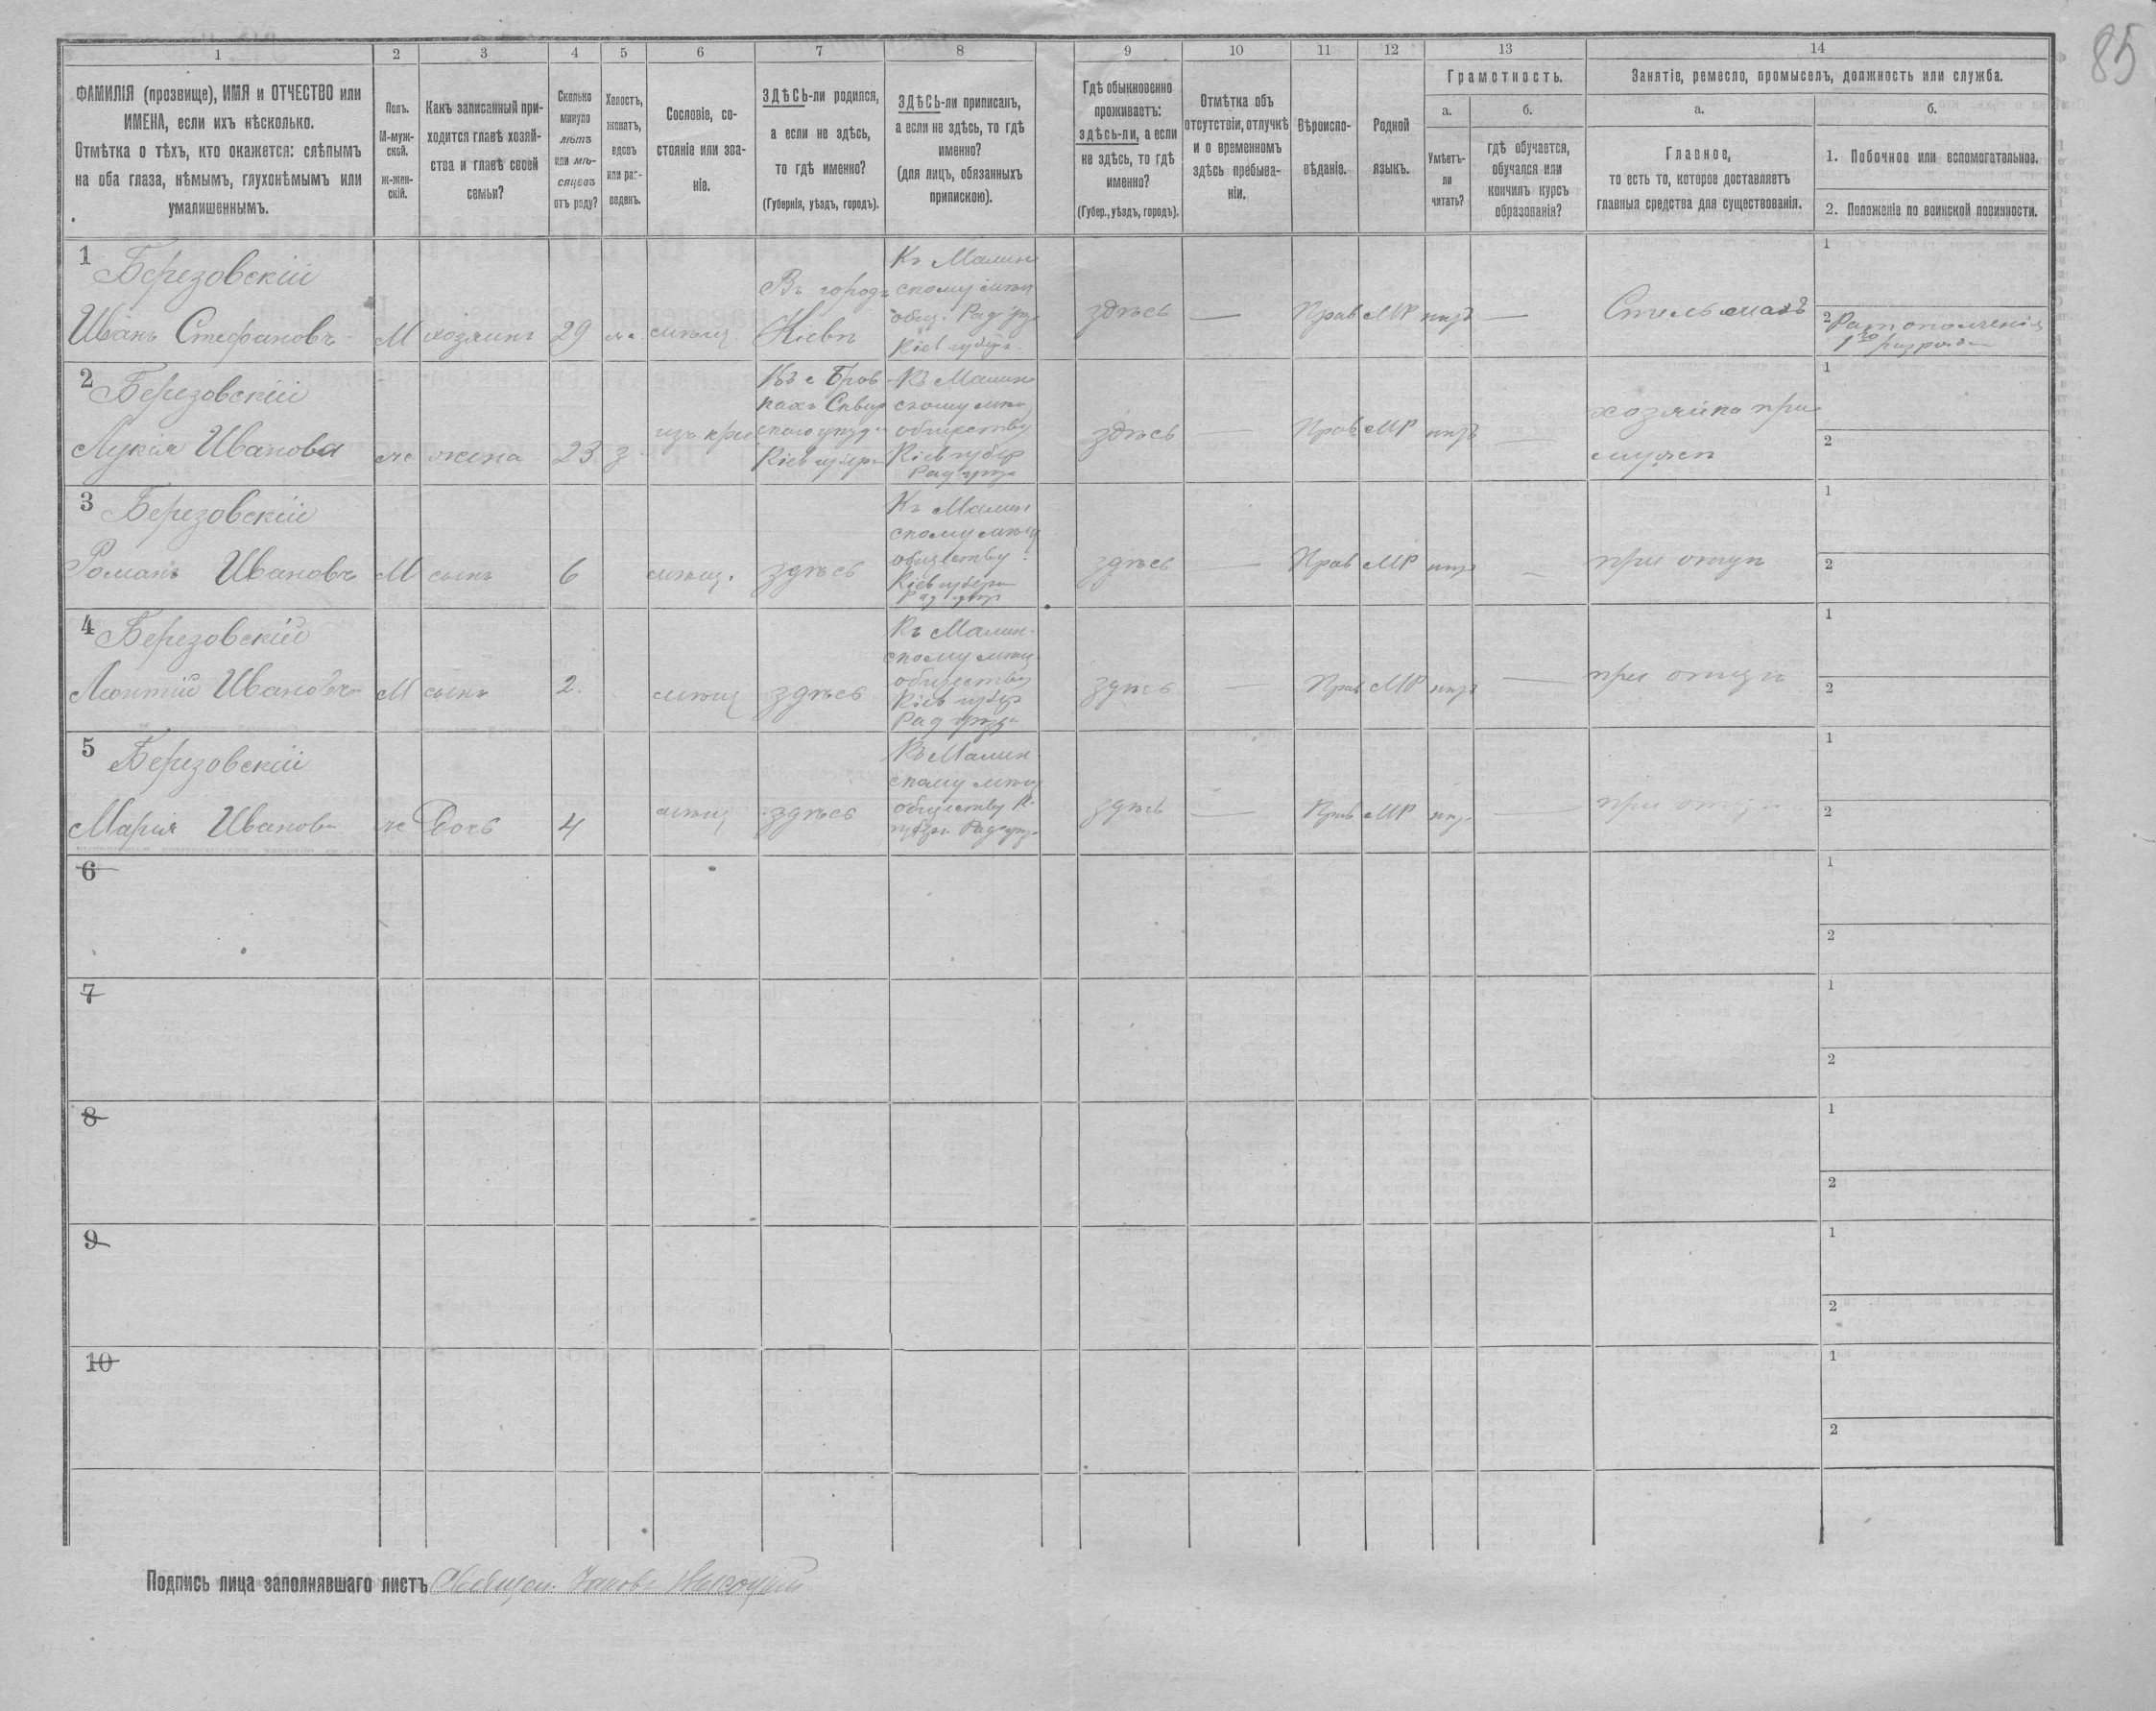 85
1 2 3 4 5 6 7 8 9 10 11 12 13 14
ФАМИЛІЯ (прозвище), ИМЯ и ОТЧЕСТВО или
ИМЕНА, если ихъ нѣсколько.
Отмѣтка о тѣхъ, кто окажется: слѣпымъ
на оба глаза, нѣмымъ, глухонѣмымъ или
умалишеннымъ.
Полъ.
М-муж-
ской.
ж-жен-
скій.
Какъ записанный при-
ходится главѣ хозяй-
ства и главѣ своей
семьи?
Сколько
минуло
лѣтъ
или мѣ-
сяцевъ
отъ роду?
Холостъ,
женатъ,
вдовъ
или раз-
веденъ.
Сословіе, со-
стояніе или зва-
ніе.
ЗДѢСЬ-ли родился,
а если не здѣсь,
то гдѣ именно?
(Губернія, уѣздъ, городъ).
ЗДѢСЬ-ли приписанъ,
а если не здѣсь, то гдѣ
именно?
(для лицъ, обязанныхъ
припискою).
Гдѣ обыкновенно
проживаетъ:
здѣсь-ли, а если
не здѣсь, то гдѣ
именно?
(Губер., уѣздъ, городъ).
Отмѣтка объ
отсутствіи, отлучкѣ
и о временномъ
здѣсь пребыва-
ніи.
Вѣроиспо-
вѣданіе.
Родной
языкъ.
Грамотность.
а.
Умѣетъ-
ли
читать?
б.
гдѣ обучается,
обучался или
кончилъ курсъ
образованія?
Занятіе, ремесло, промыселъ, должность или служба.
а.
Главное,
то есть то, которое доставляетъ
главныя средства для существованія.
б.
1. Побочное или вспомогательное.
2. Положеніе по воинской повинности.
1
Березовскій
Иванъ Стефановъ М хозяинъ 29 ж. мѣщ.
Въ городѣ
Кіевѣ
Къ Малин
скому мѣщ
общ. Рад уѣз
Кіев губерн.
здѣсь — Прав МР нѣтъ — Стельмахъ
1
2 Рат ополченія
1го разряда
2
Березовскій
Лукія Иванова ж жена 23 з изъ крес
Въ с Бров
кахъ Сквир
скаго уѣзда
Кіев губерн
Къ Малин
скому мѣщ
обществу
Кіев губер
Рад уѣзда
здѣсь — Прав МР нѣтъ —
хозяйка при
мужѣ
1
2
3
Березовскій
Романъ Ивановъ М сынъ 6 мѣщ. здѣсь
Къ Малин
скому мѣщ
обществу
Кіев губерн
Рад уѣзд
здѣсь — Прав МР нѣт — при отцѣ
1
2
4
Березовскій
Леонтій Ивановъ М сынъ 2. мѣщ здѣсь
Къ Малин-
скому мѣщ.
обществу
Кіев губер
Рад уѣзда
здѣсь — Прав МР нѣтъ — при отцѣ
1
2
5
Березовскій
Марія Иванова ж Дочь 4 мѣщ здѣсь
Къ Малин
скому мѣщ
обществу К.
губерн. Рад уѣз.
здѣсь — Прав МР нѣт — при отцѣ
1
2
6
1
2
7
1
2
8
1
2
9
1
2
10
1
2
Подпись лица заполнявшаго листъ